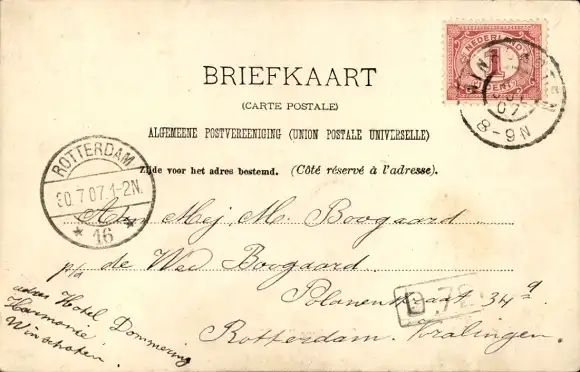 NEDERLAND
1
CENT
BRIEFKAART
(CARTE POSTALE)
ALGEMEENE POSTVEREENIGING (UNION POSTALE UNIVERSELLE)
Zijde voor het adres bestemd. (Côté réservé à l'adresse).
07
8-9N
ROTTERDAM
30.7.07.1-2N.
* 16 *
Aan Mej. M. Boogaard
p/a de Wed Boogaard
Polanenstraat 34 a
D.
Rotterdam. Kralingen.
adres Hotel Dommering
Harmonie
Winschoten.